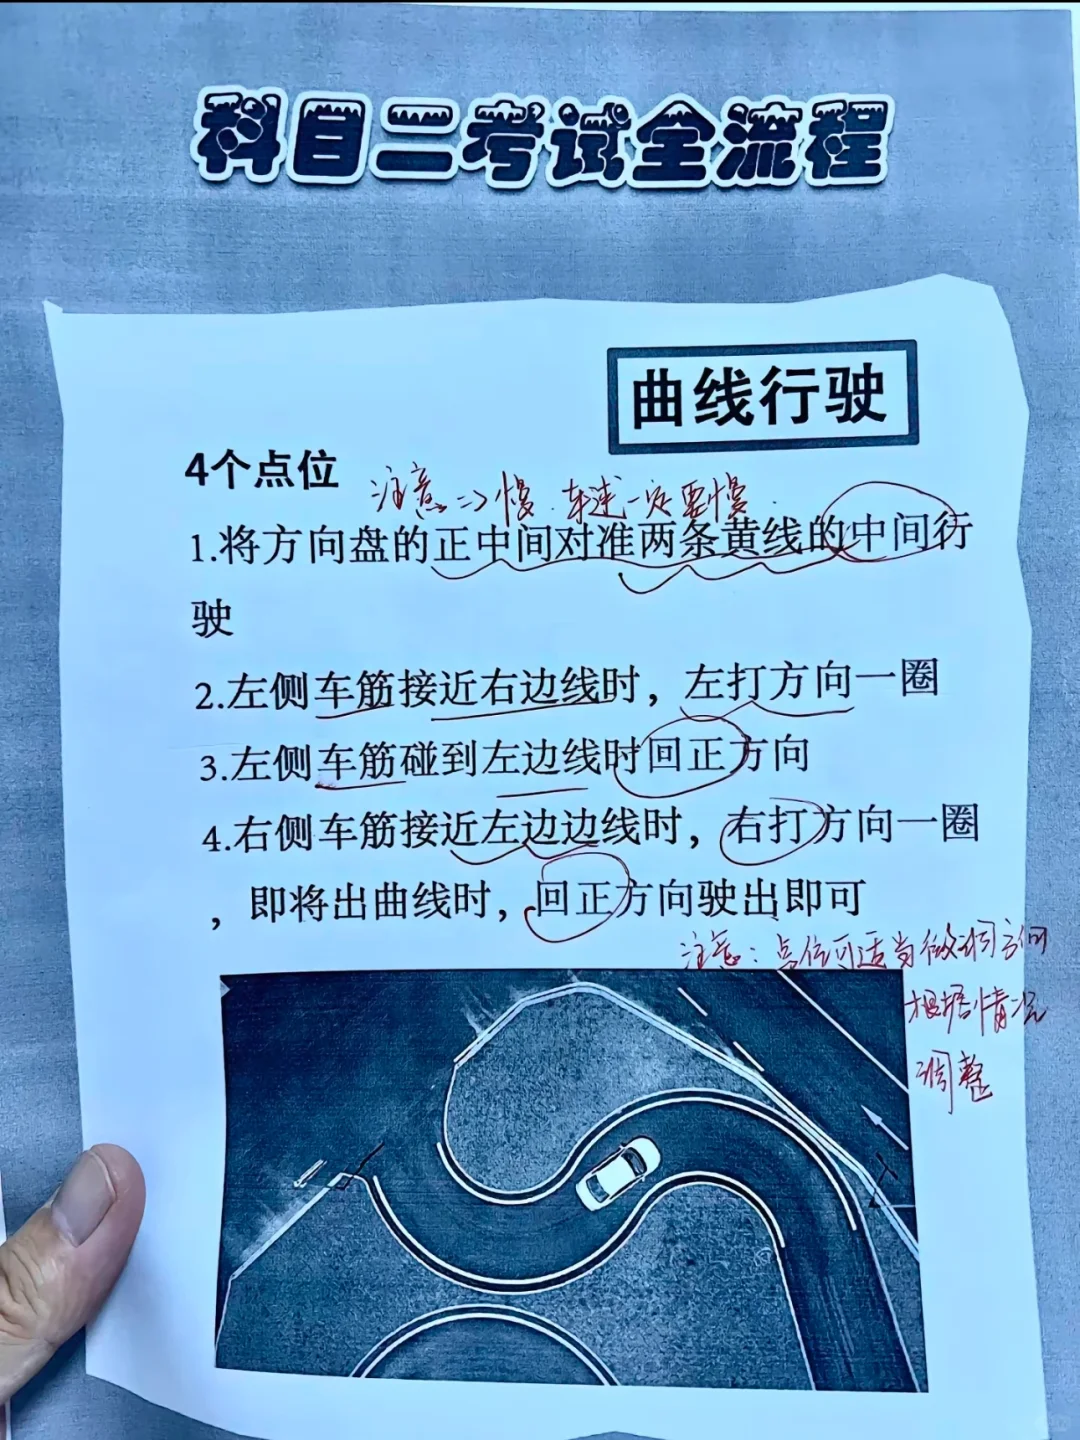 科目二考试全流程
曲线行驶
4个点位
注意=>慢.车速一定要慢.
1.将方向盘的正中间对准两条黄线的中间行
驶
2.左侧车筋接近右边线时，左打方向一圈
3.左侧车筋碰到左边线时回正方向
4.右侧车筋接近左边边线时，右打方向一圈
，即将出曲线时，回正方向驶出即可
注意：点位可适当微调方向
根据情况
调整